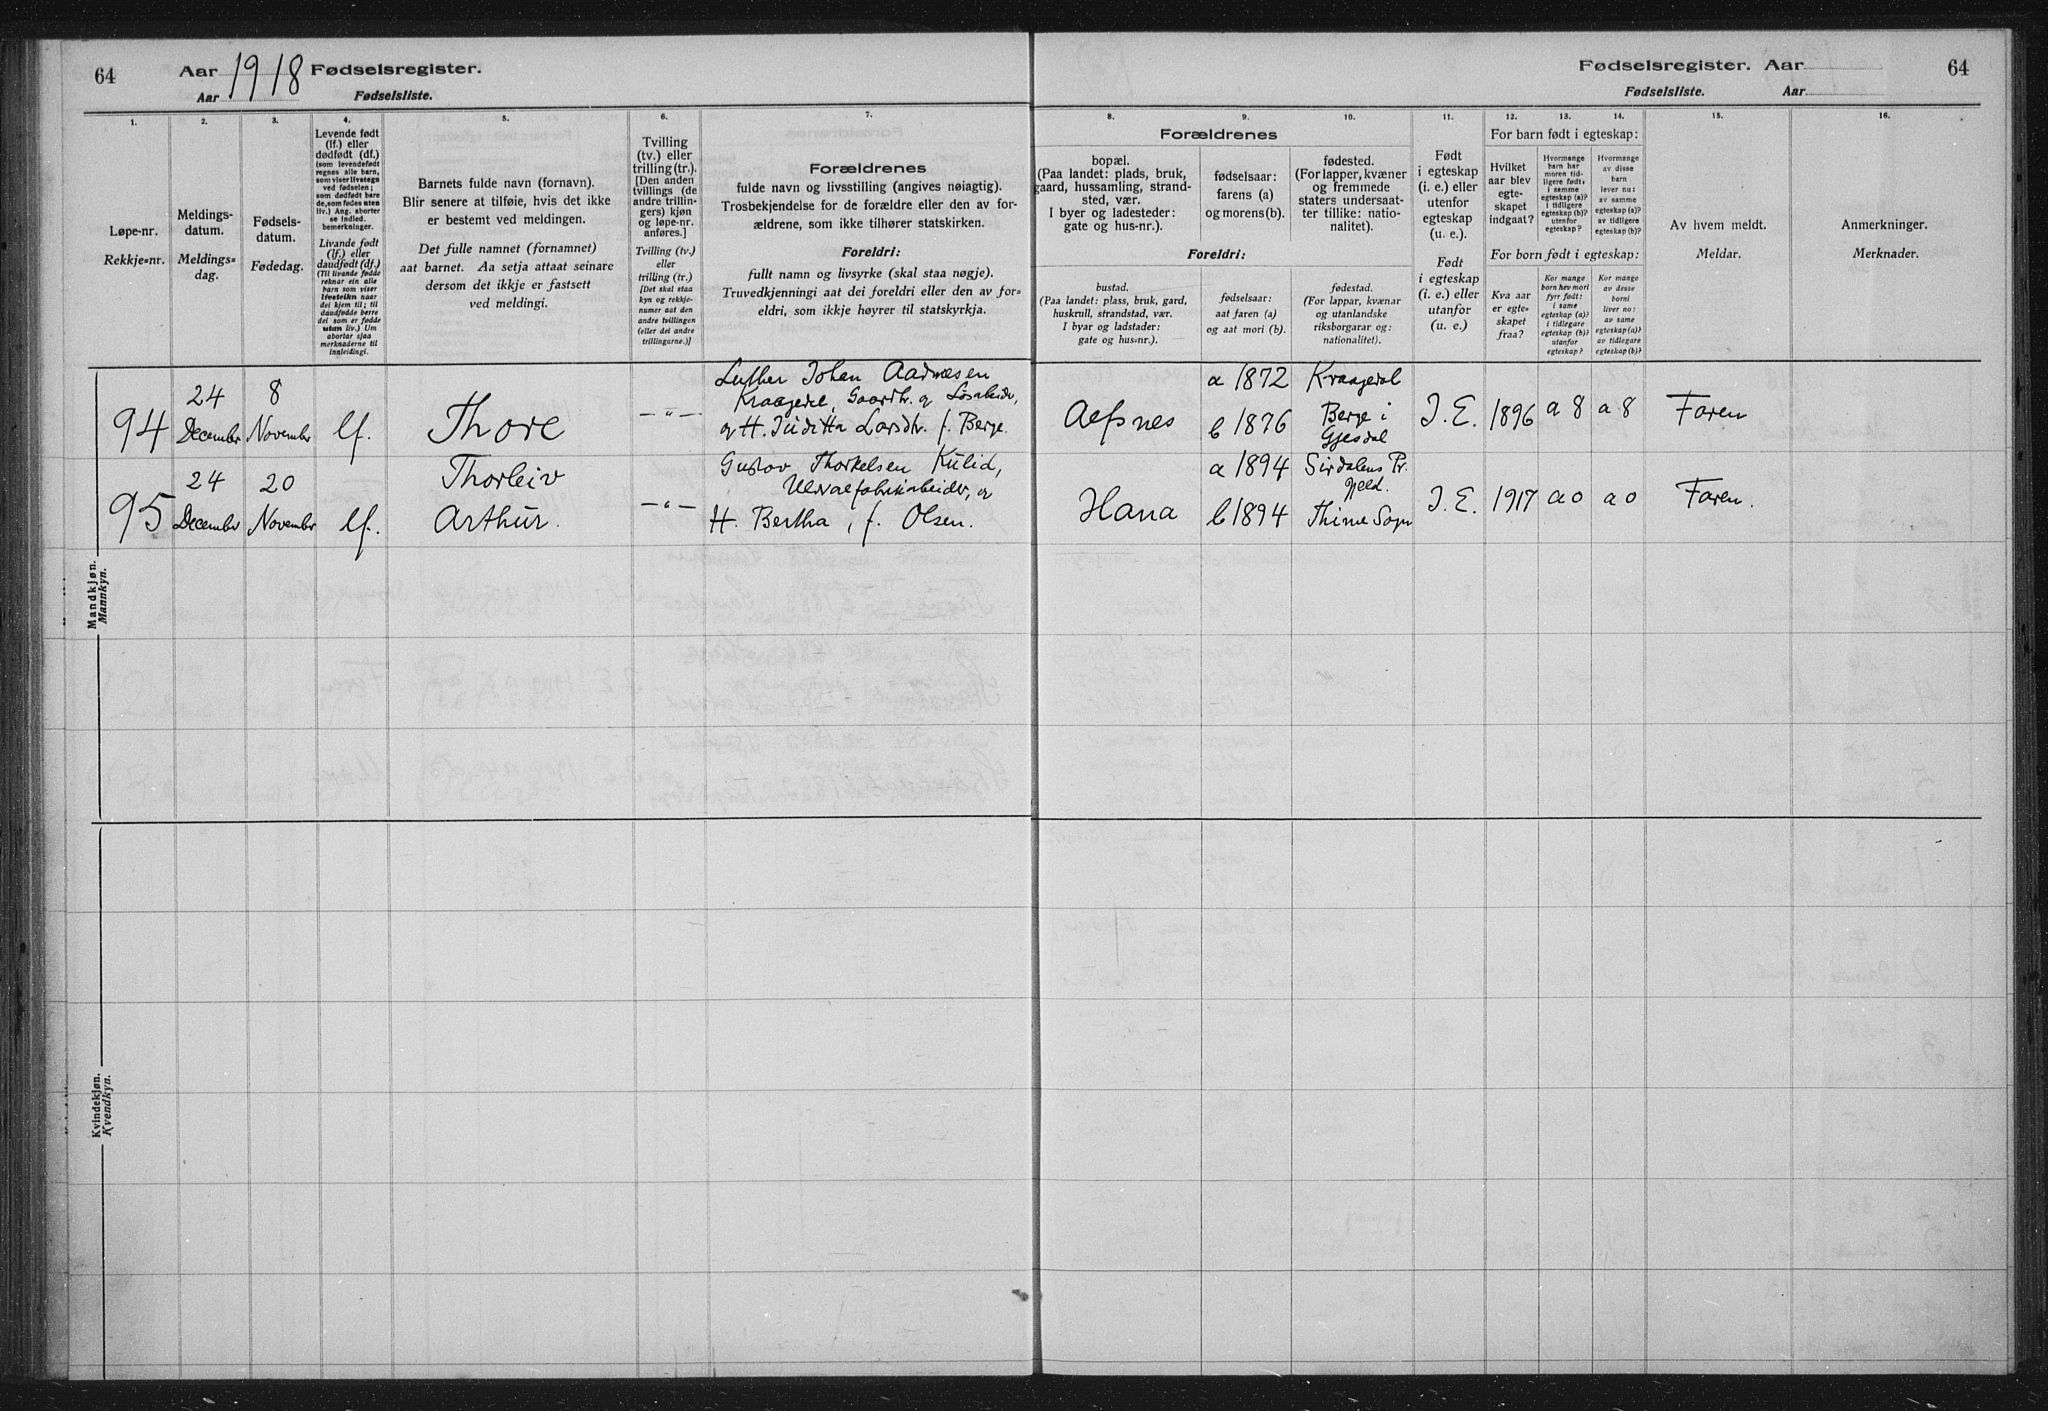 64
Aar 1918 Fødselsregister.
Aar Fødselsliste.
Fødselsregister. Aar
Fødselsliste. Aar
64
1.
Løpe-nr.
Rekkje-nr.
2.
Meldings-
datum.
Meldings-
dag.
3.
Fødsels-
datum.
Fødedag.
4.
Levende født
(lf.) eller
dødfødt (df.)
(som levendefødt
regnes alle barn,
som viser livstegn
ved fødselen;
som dødfødt bare
de, som fødes uten
liv.) Ang. aborter
se indled.
bemerkninger.
Livande født
(lf.) eller
daudfødt (df.)
(Til livande fødde
reknar ein alle
barn som viser
livsteikn naar
dei kjem til; til
daudfødde berre
dei som er fødde
utan liv.) Um
abortar sjaa
merknaderne til
innleidingi.
5.
Barnets fulde navn (fornavn).
Blir senere at tilføie, hvis det ikke
er bestemt ved meldingen.
Det fulle namnet (fornamnet)
aat barnet. Aa setja attaat seinare
dersom det ikkje er fastsett
ved meldingi.
6.
Tvilling
(tv.) eller
trilling (tr.).
[Den anden
tvillings (de
andre trillin-
gers) kjøn
og løpe-nr.
anføres.]
Tvilling (tv.)
eller
trilling (tr.)
[Det skal staa
kyn og rekkje-
numer aat den
andre tvillingen
(eller dei andre
trillingarne.)]
7.
Forældrenes
fulde navn og livsstilling (angives nøiagtig).
Trosbekjendelse for de forældre eller den av for-
ældrene, som ikke tilhører statskirken.
Foreldri:
fullt namn og livsyrke (skal staa nøgje).
Truvedkjenningi aat dei foreldri eller den av for-
eldri, som ikkje høyrer til statskyrkja.
8.
9.
10.
Forældrenes
bopæl.
(Paa landet: plads, bruk,
gaard, hussamling, strand-
sted, vær.
I byer og ladesteder:
gate og hus-nr.).
fødselsaar:
farens (a)
og morens (b).
fødested.
(For lapper, kvæner
og fremmede
staters undersaat-
ter tillike: natio-
nalitet).
Foreldri:
bustad.
(Paa landet: plass, bruk, gard,
huskrull, strandstad, vær.
I byar og ladstader:
gate og hus-nr.).
fødselsaar:
aat faren (a)
og aat mori (b).
fødestad.
(For lappar, kvænar
og utanlandske
riksborgarar og:
nationalitet).
11.
Født
i egteskap
(i. e.) eller
utenfor
egteskap
(u. e.).
Født
i egteskap
(i. e.) eller
utanfor
(u. e.).
12.
13.
14.
For barn født i egteskap:
Hvilket
aar blev
egte-
skapet
indgaat?
Hvormange
barn har
moren tid-
ligere født:
i samme
egteskap (a)?
i tidligere
egteskap (b)?
utenfor
egteskap?
Hvormange
av disse
barn
lever nu:
av samme
egteskap (a)?
av tidligere
egteskap (b)?
For born født i egteskap:
Kva aar
er egte-
skapet
fraa?
Kor mange
born hev mori
fyrr født:
i same
egteskap (a)?
i tidlegare
egteskap (b)?
utanfor
egteskap?
Kor mange
av desse
borni
liver no:
av same
egteskap (a)?
av tidlegare
egteskap (b)?
15.
Av hvem meldt.
Meldar.
16.
Anmerkninger.
Merknader.
Mandkjøn.
Mannkyn.
94
24
December
8
November
lf.
Thore
— „ —
Luther Johan Aadnesen
Kraagedal, Gaardbr. og Løsarbeider,
og H. Juditta Larsdtr. f. Berge.
Aelsnes
a 1872
b 1876
Kraagedal
Berge i
Gjesdal
I. E.
1896
a 8
a 8
Faren
95
24
December
20
November
lf.
Thorleiv
Arthur.
— „ —
Gustav Thorkelsen Kulid,
Uldvarefabrikarbeider, og
H. Bertha, f. Olsen.
Hana
a 1894
b 1894
Sirdalens Pr.
gjeld.
Thime Sogn
I. E.
1917
a 0
a 0
Faren.
Kvindekjøn.
Kvendkyn.